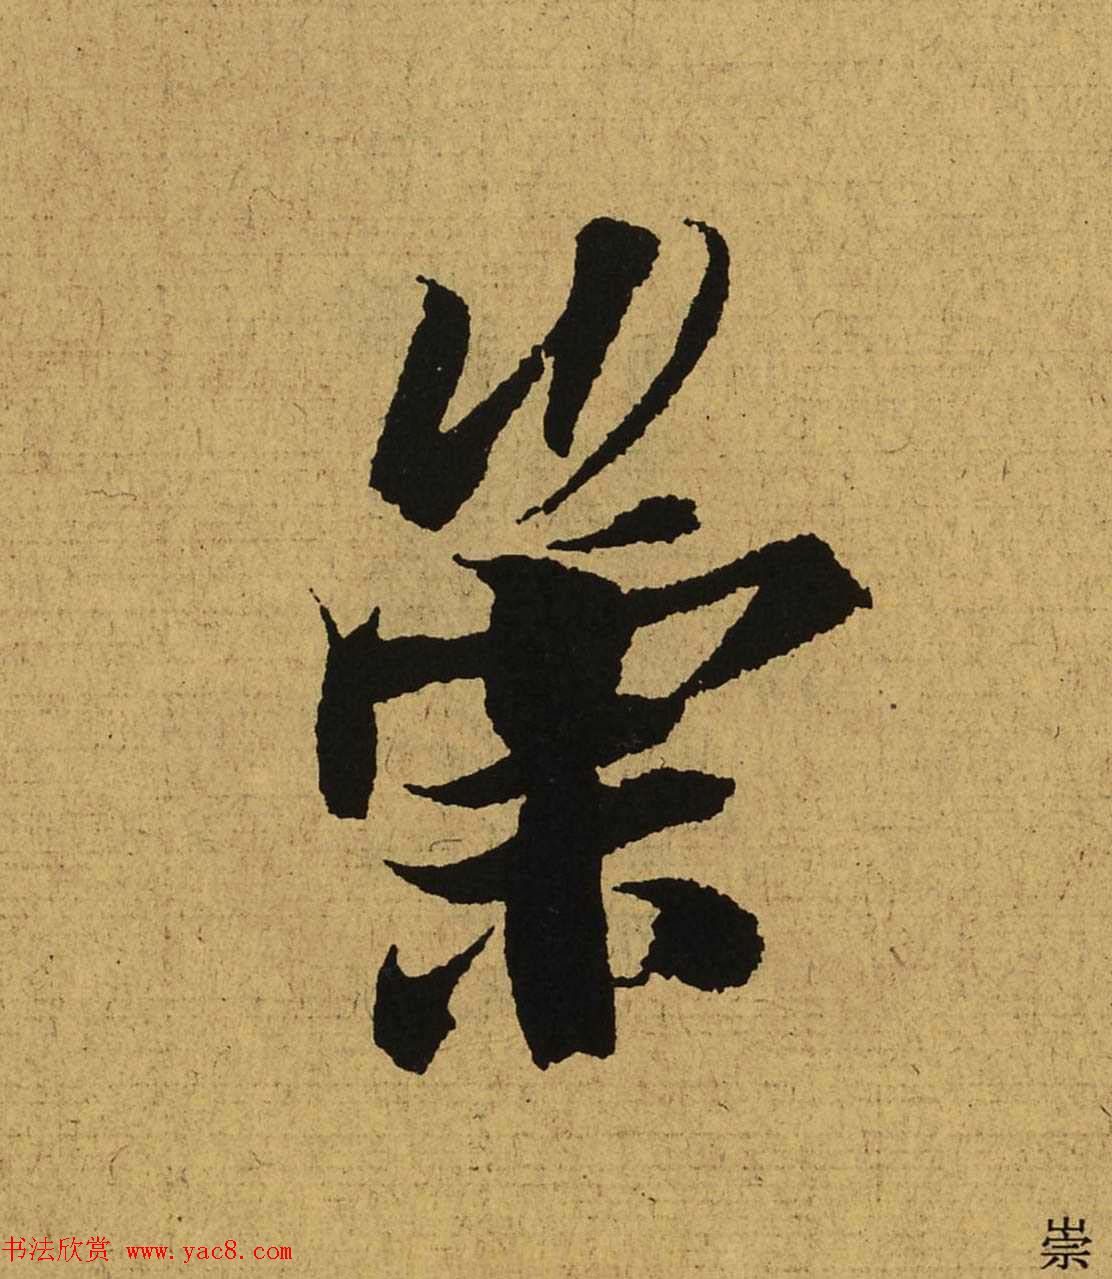 崇
书法欣赏 www.yac8.com
崇